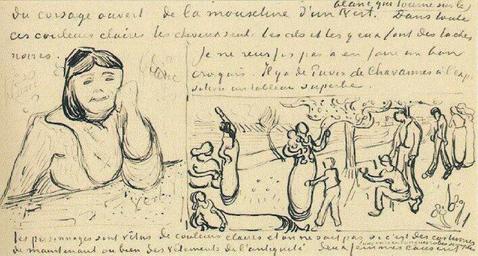 blanc, qui tourne sur le
du corsage ouvert de la mousseline d'un vert. Dans toute
ces couleurs claires les cheveux et les cils et les yeux font des taches
noires. Je ne reussis pas a en faire un bon
croquis. Il y a de Puvis de Chavannes à l'exp
un tableau superbe.
blanc
vert
les personnages sont vêtus de couleurs claires et on ne sait pas si c'est des costumes
de maintenant ou bien des vêtements de l'antiquité deux femmes